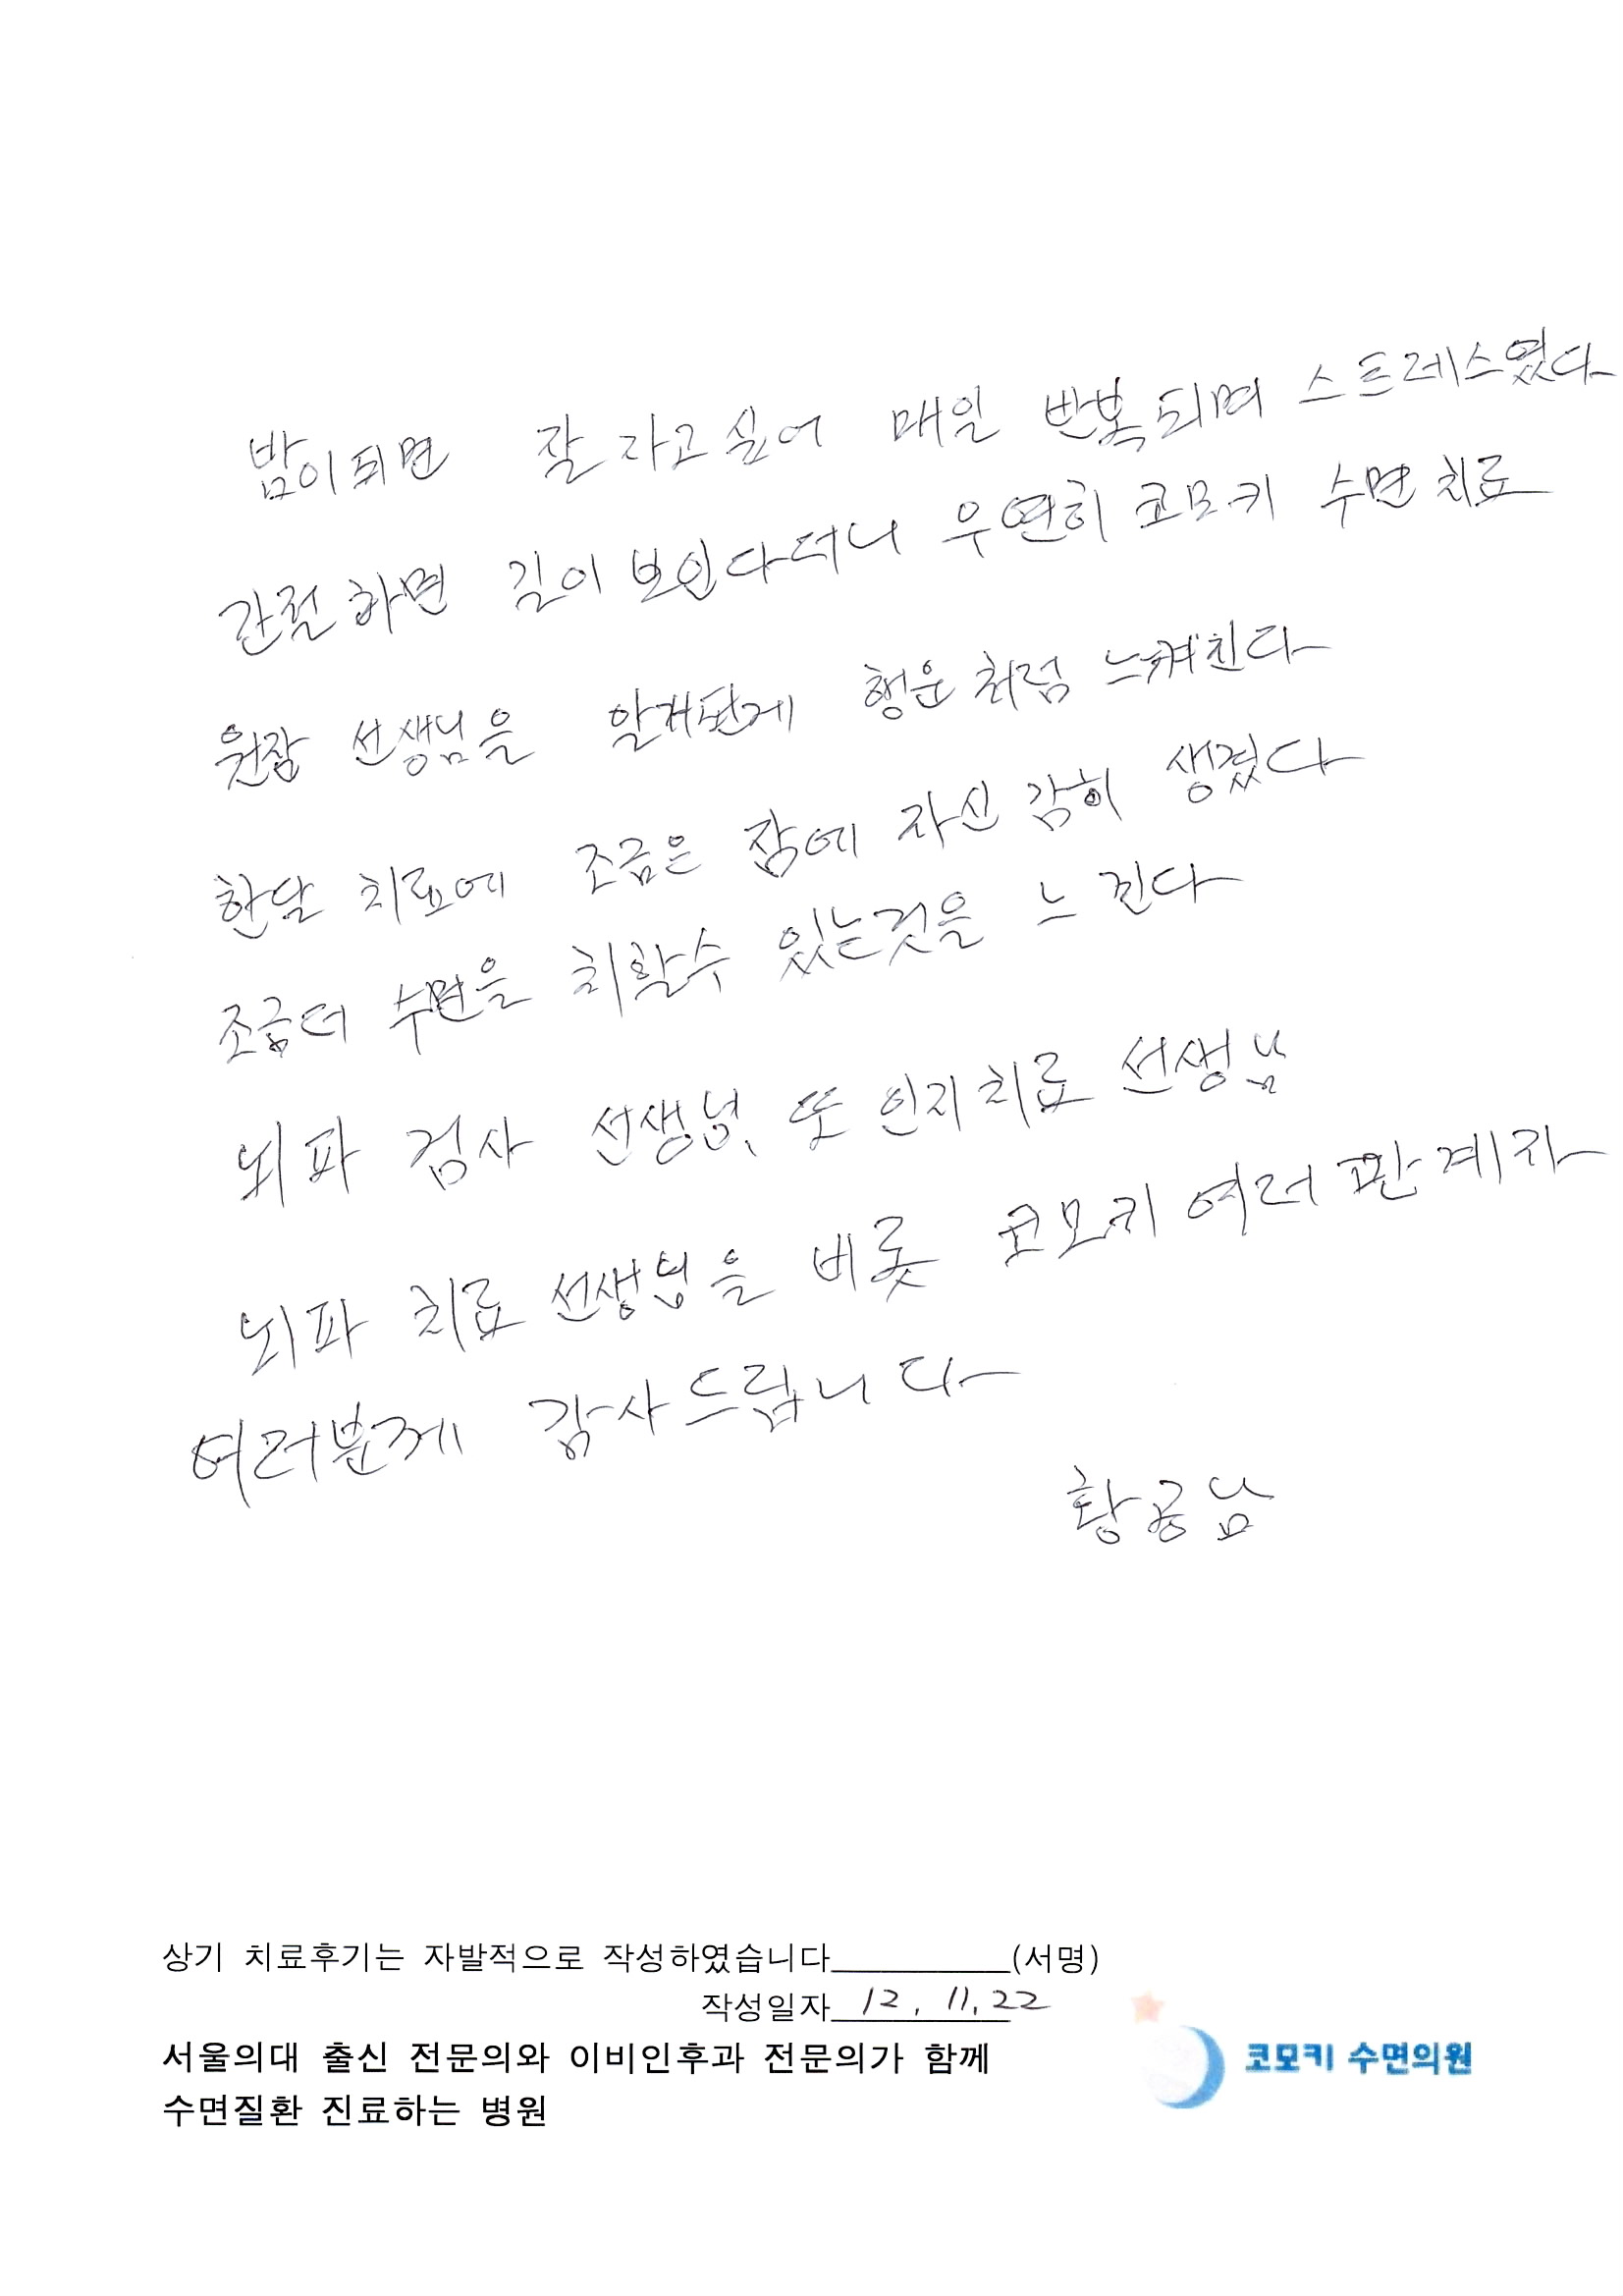 밤이되면 잘 자고싶어 매일 반복되며 스트레스였다
간절하면 길이 보인다더니 우연히 코모키 수면 치료
원장 선생님을 알게된게 행운처럼 느껴진다
한달 치료에 조금은 잠에 자신감히 생겼다
조금더 수면을 취할수 있는것을 느낀다
뇌파 검사 선생님, 또 인지치료 선생님
뇌파 치료 선생님을 비롯 코모키 여러 관계자
여러분께 감사드립니다
황공남
상기 치료후기는 자발적으로 작성하였습니다__________(서명)
작성일자 12, 11, 22
서울의대 출신 전문의와 이비인후과 전문의가 함께
수면질환 진료하는 병원
코모키 수면의원